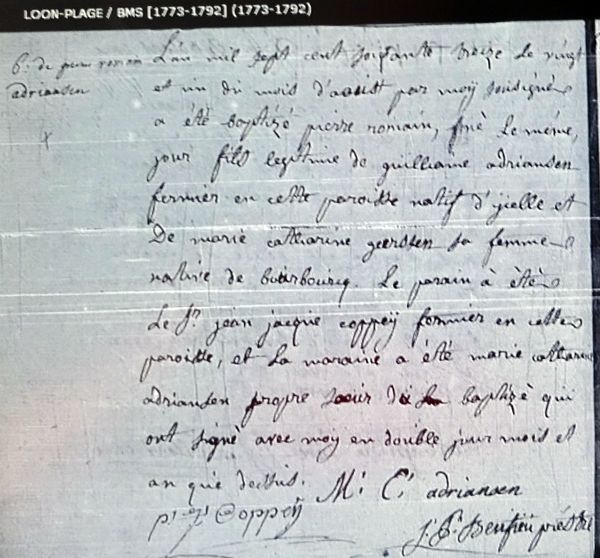 LOON-PLAGE / BMS [1773-1792] (1773-1792)
b. de pierre romain
adriansen
L'an mil sept cent soixante treize le vingt
et un du mois d'aoust par moy soussigné
a été baptizé pierre romain, né le même
jour fils legitime de guilliaume adriansen
fermier en cette paroisse natif d' et
De marie catharine geerssen sa femme
native de bourbourcq. Le parain à été
Le Sr. jean jacque coppeÿ fermier en cette
paroisse, et La maraine a été marie catharine
adriansen propre soeur du baptizé qui
ont signé avec moy en double jour mois et
an que dessus.
M: C: adriansen
Coppeÿ
prestre